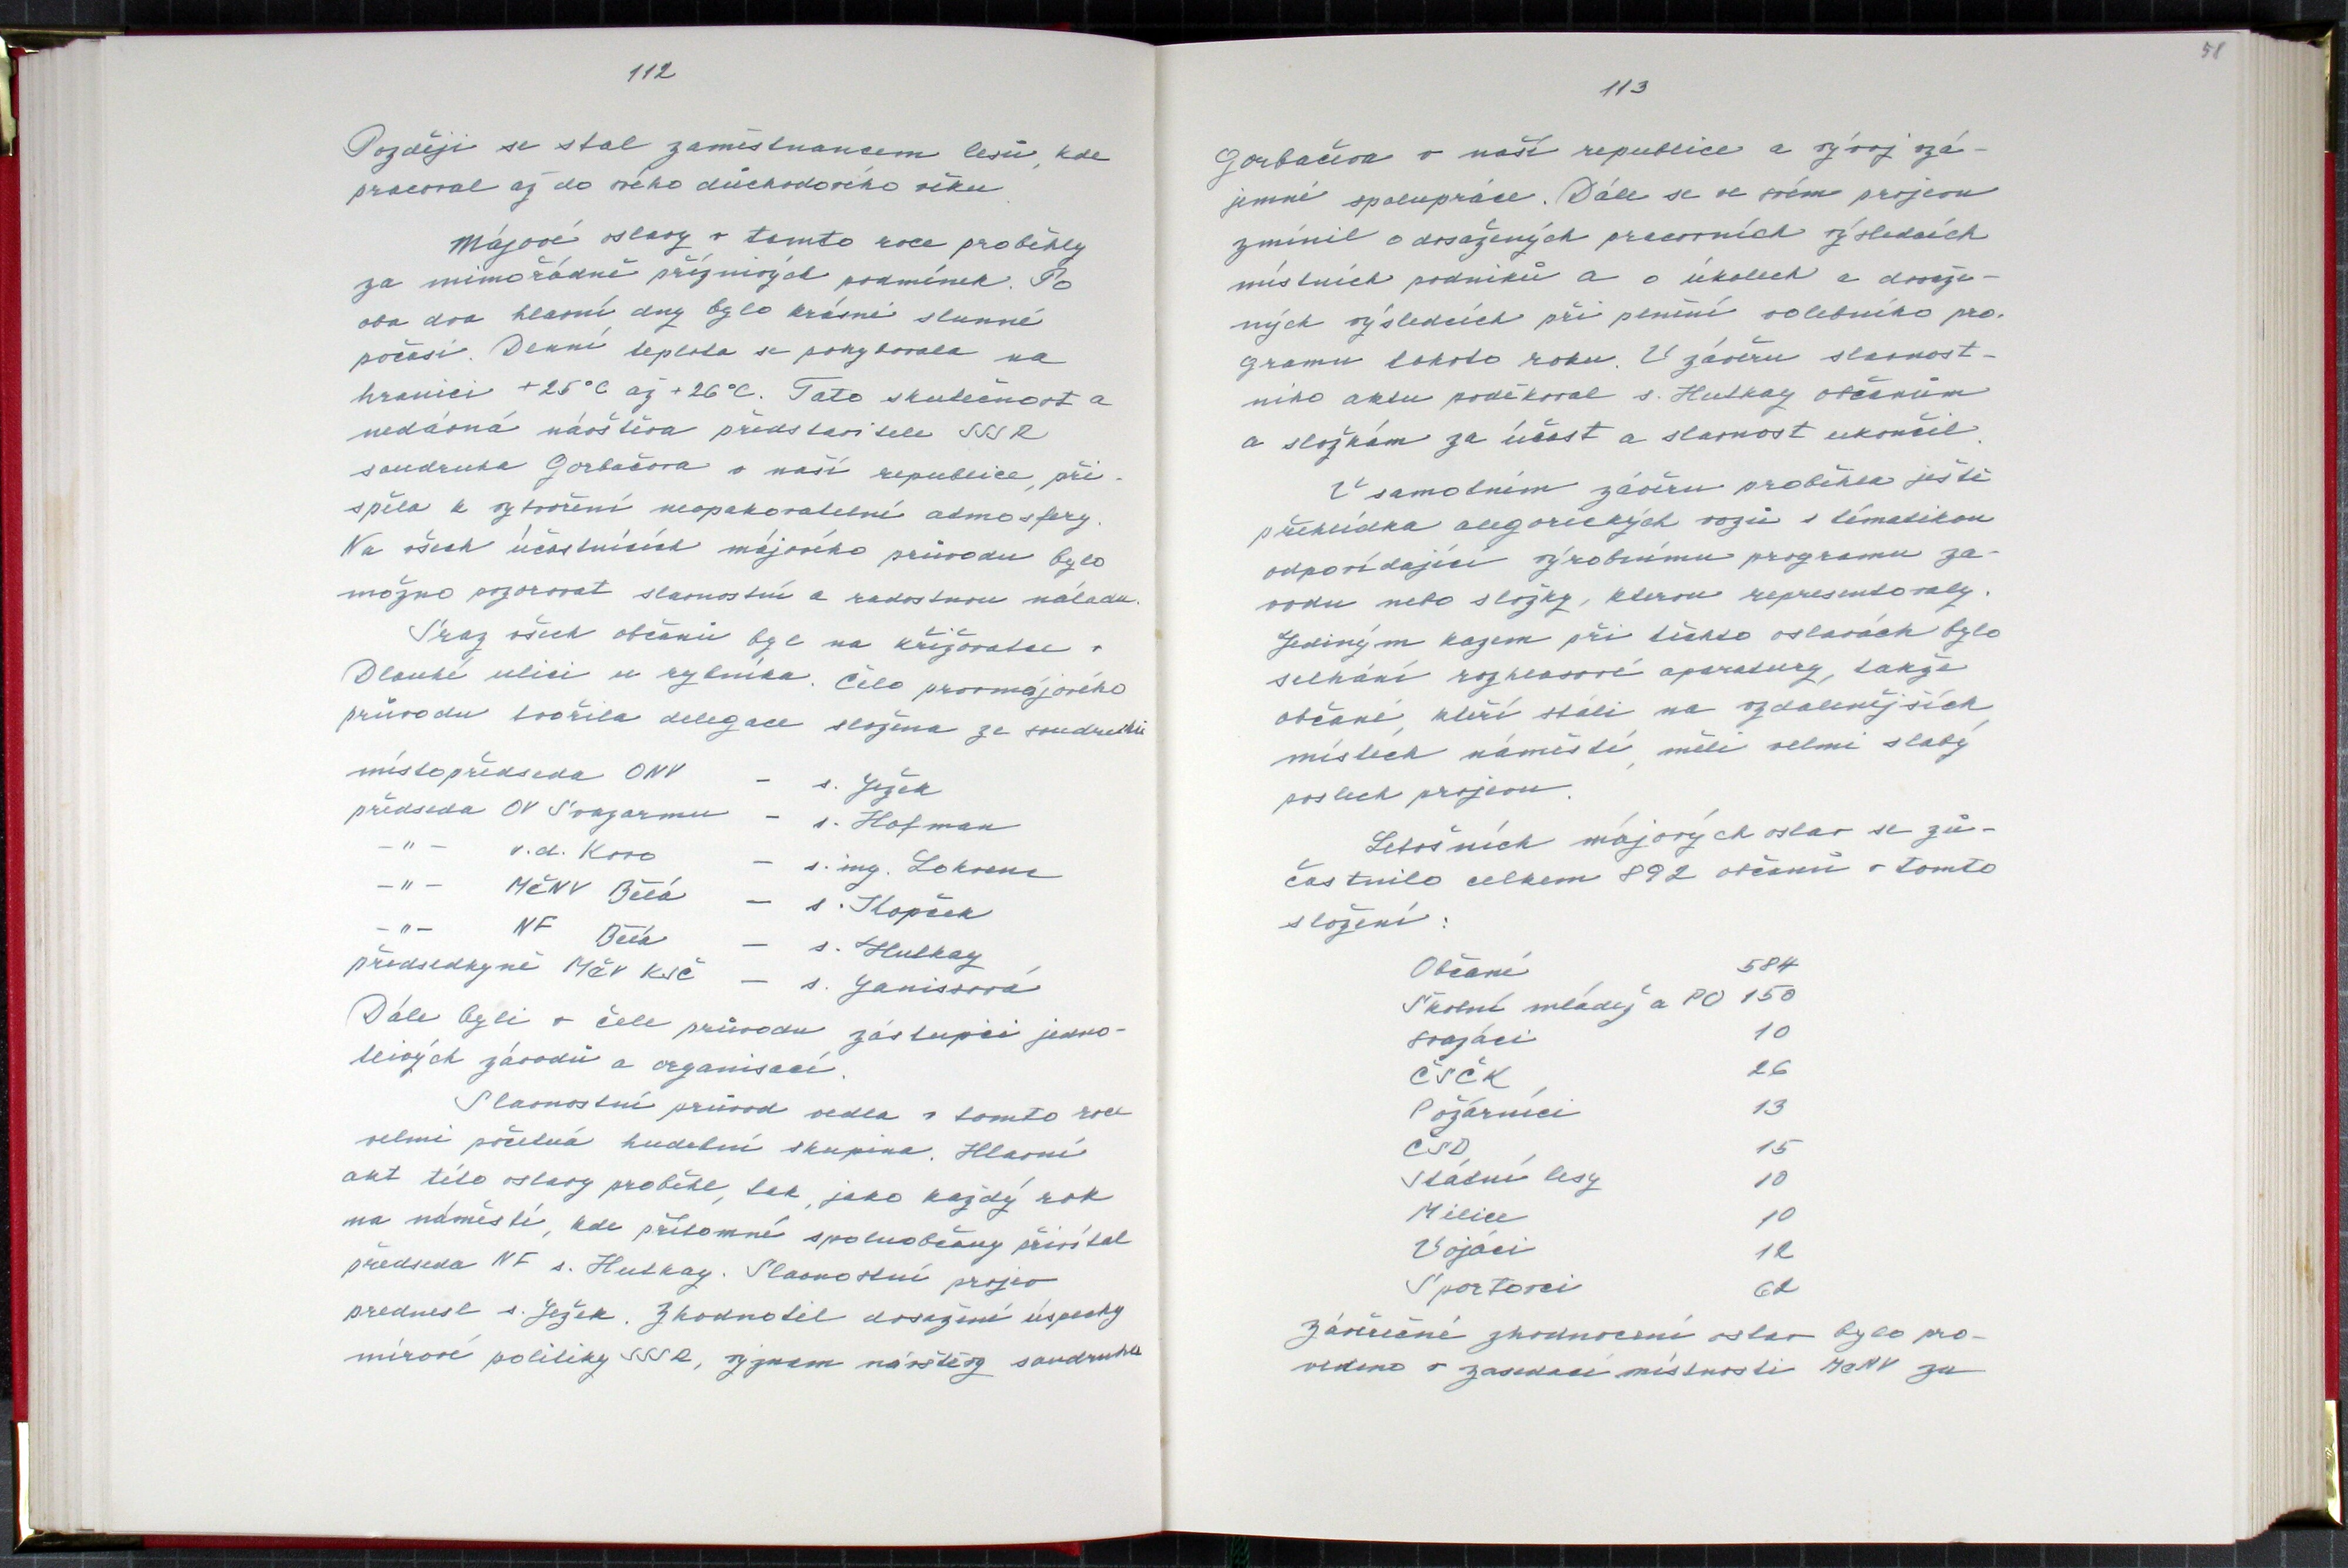 112
Později se stal zaměstnancem lesů, kde
pracoval až do svého důchodového věku.
Májové oslavy v tomto roce proběhly
za mimořádně příznivých podmínek. Po
oba dva hlavní dny bylo krásné slunné
počasí. Denní teplota se pohybovala na
hranici +25°C až +26°C. Tato skutečnost a
nedávná návštěva představitele SSSR
soudruha Gorbačova v naší republice, při-
spěla k vytvoření neopakovatelné atmosfery.
Na všech účastnících májového průvodu bylo
možno pozorovat slavnostní a radostnou náladu.
Sraz všech občanů byl na křižovatce v
Dlouhé ulici u rybníka. Čelo prvomájového
průvodu tvořila delegace složena ze soudruhů
místopředseda ONV - s. Ježek
předseda OV Svazarmu - s. Hofman
-"- v.d. Kovo - s. ing. Lokvenc
-"- MěNV Bělá - s. Klopček
-"- NF Bělá - s. Hutkay
předsedkyně MěV KSČ - s. Janissová
Dále byli v čele průvodu zástupci jedno-
tlivých závodů a organisací.
Slavnostní průvod vedla v tomto roce
velmi početná hudební skupina. Hlavní
akt této oslavy proběhl, tak, jako každý rok
na náměstí, kde přítomné spoluobčany přivítal
předseda NF s. Hutkay. Slavnostní projev
prednesl s. Ježek. Zhodnotil dosažené úspechy
mírové politiky SSSR, význam návštěvy soudruha
58
113
Gorbačova v naší republice a vývoj vzá-
jemné spolupráce. Dále se ve svém projevu
zmínil o dosažených pracovních výsledcích
místních podniků a o úkolech a dosaže-
ných výsledcích při plnění volebního pro-
gramu tohoto roku. V závěru slavnost-
ního aktu poděkoval s. Hutkay občanům
a složkám za účast a slavnost ukončil.
V samotném závěru proběhla ještě
přehlídka alegorických vozů s tématikou
odpovídající výrobnímu programu zá-
vodu nebo složky, kterou representovaly.
Jediným kazem při těchto oslavách bylo
selhání rozhlasové aparatury, takže
občané, kteří stáli na vzdalenějších
místech náměstí, měli velmi slabý
poslech projevu.
Letošních májových oslav se zú-
častnilo celkem 892 občanů v tomto
složení:
Občané 584
Školní mládež a PO 150
svazáci 10
ČSČK 26
Požárníci 13
ČSD 15
Státní lesy 10
Milice 10
Vojáci 12
Sportovci 62
Závěrečné zhodnocení oslav bylo pro-
vedeno v zasedací místnosti MěNV za